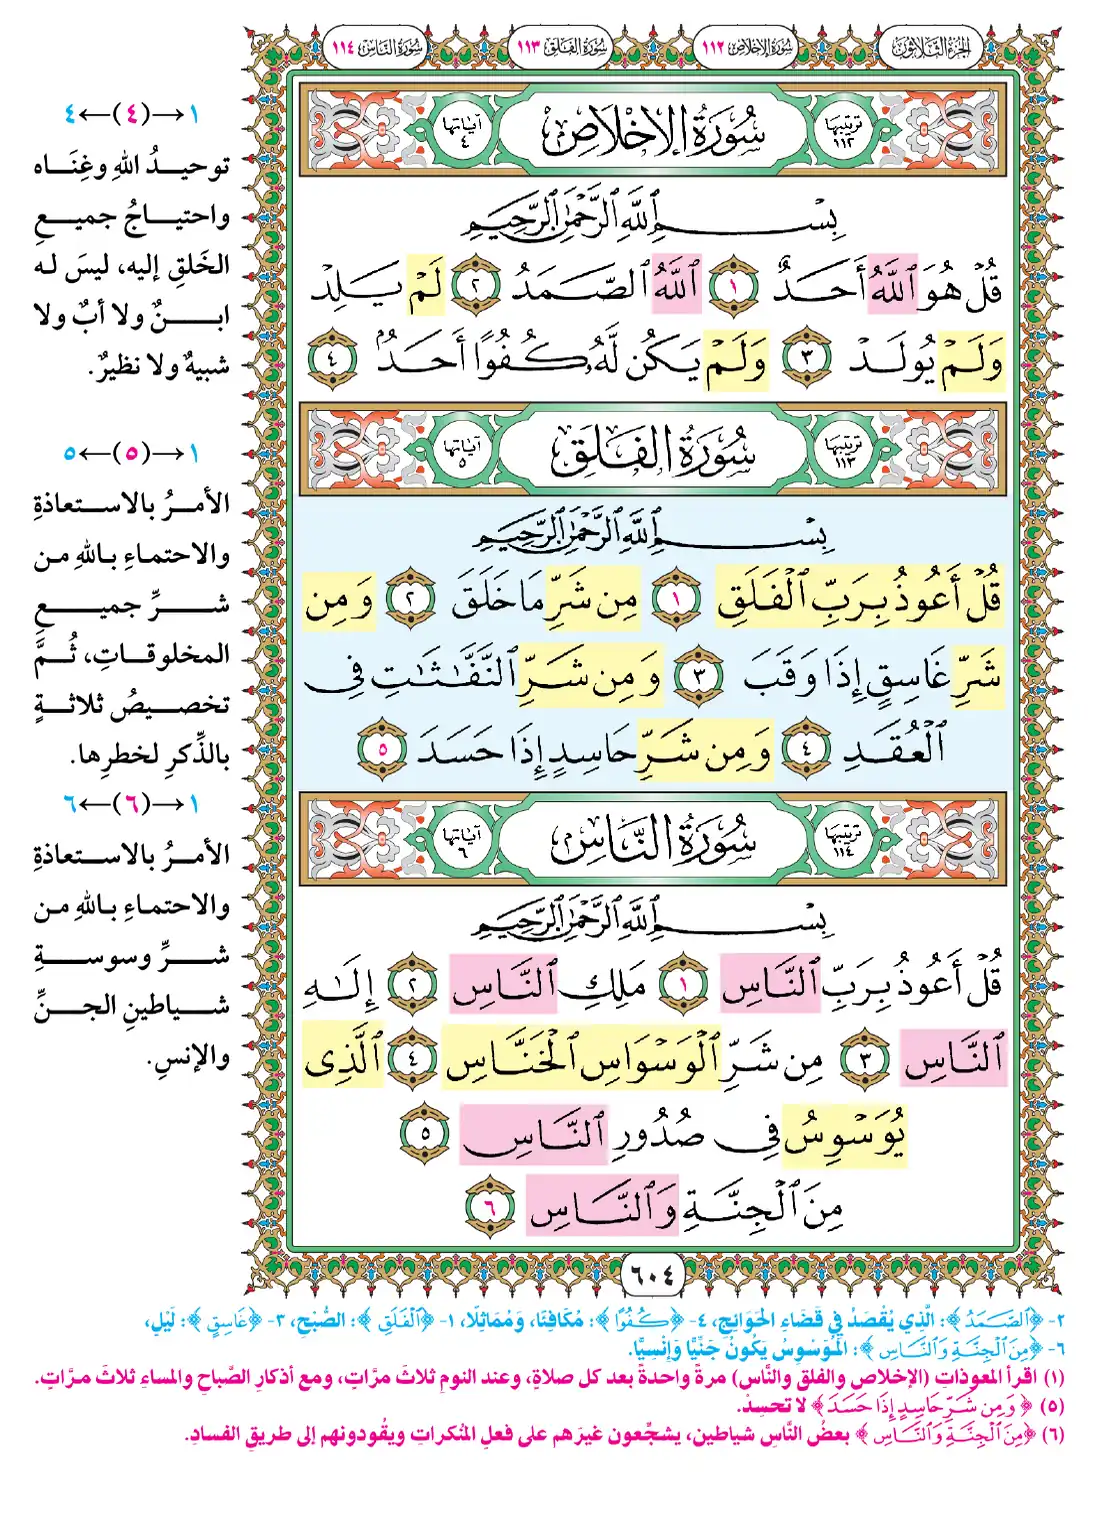 الجزء الثلاثون
سورة الإخلاص ١١٢
سورة الفلق ١١٣
سورة الناس ١١٤
ترتيبها ١١٢
سُورَةُ الإِخْلَاصِ
آياتها ٤
بِسْمِ ٱللَّهِ ٱلرَّحْمَٰنِ ٱلرَّحِيمِ
قُلْ هُوَ ٱللَّهُ أَحَدٌ ١ ٱللَّهُ ٱلصَّمَدُ ٢ لَمْ يَلِدْ
وَلَمْ يُولَدْ ٣ وَلَمْ يَكُن لَّهُۥ كُفُوًا أَحَدٌۢ ٤
ترتيبها ١١٣
سُورَةُ الفَلَقِ
آياتها ٥
بِسْمِ ٱللَّهِ ٱلرَّحْمَٰنِ ٱلرَّحِيمِ
قُلْ أَعُوذُ بِرَبِّ ٱلْفَلَقِ ١ مِن شَرِّ مَا خَلَقَ ٢ وَمِن
شَرِّ غَاسِقٍ إِذَا وَقَبَ ٣ وَمِن شَرِّ ٱلنَّفَّٰثَٰتِ فِى
ٱلْعُقَدِ ٤ وَمِن شَرِّ حَاسِدٍ إِذَا حَسَدَ ٥
ترتيبها ١١٤
سُورَةُ النَّاسِ
آياتها ٦
بِسْمِ ٱللَّهِ ٱلرَّحْمَٰنِ ٱلرَّحِيمِ
قُلْ أَعُوذُ بِرَبِّ ٱلنَّاسِ ١ مَلِكِ ٱلنَّاسِ ٢ إِلَٰهِ
ٱلنَّاسِ ٣ مِن شَرِّ ٱلْوَسْوَاسِ ٱلْخَنَّاسِ ٤ ٱلَّذِى
يُوَسْوِسُ فِى صُدُورِ ٱلنَّاسِ ٥
مِنَ ٱلْجِنَّةِ وَٱلنَّاسِ ٦
٦٠٤
١→(٤)←٤
توحيدُ اللهِ وغِنَاه
واحتياجُ جميعِ
الخَلقِ إليه، ليسَ له
ابنٌ ولا أبٌ ولا
شبيهٌ ولا نظيرٌ.
١→(٥)←٥
الأمرُ بالاستعاذةِ
والاحتماءِ باللهِ من
شرِّ جميعِ
المخلوقاتِ، ثُمَّ
تخصيصُ ثلاثةٍ
بالذِّكرِ لخطرِها.
١→(٦)←٦
الأمرُ بالاستعاذةِ
والاحتماءِ باللهِ من
شرِّ وسوسةِ
شياطينِ الجنِّ
والإنسِ.
٢- ﴿ٱلصَّمَدُ﴾: الَّذِي يُقْصَدُ فِي قَضَاءِ الحَوَائِجِ، ٤- ﴿كُفُوًا﴾: مُكَافِئًا، وَمُمَاثِلًا، ١- ﴿ٱلْفَلَقِ﴾: الصُّبْحِ، ٣- ﴿غَاسِقٍ﴾: لَيْلٍ،
٦- ﴿مِنَ ٱلْجِنَّةِ وَٱلنَّاسِ﴾: المُوَسْوِسُ يَكُونُ جِنِّيًّا وَإِنْسِيًّا.
(١) اقرأ المعوذاتِ (الإخلاص والفلق والنَّاس) مرةً واحدةً بعد كل صلاةٍ، وعند النومِ ثلاثَ مرَّاتٍ، ومع أذكارِ الصَّباحِ والمساءِ ثلاثَ مرَّاتٍ.
(٥) ﴿وَمِن شَرِّ حَاسِدٍ إِذَا حَسَدَ﴾ لا تحسِدْ.
(٦) ﴿مِنَ ٱلْجِنَّةِ وَٱلنَّاسِ﴾ بعضُ النَّاسِ شياطين، يشجِّعون غيرَهم على فعلِ المُنكراتِ ويقُودونهم إلى طريقِ الفسادِ.